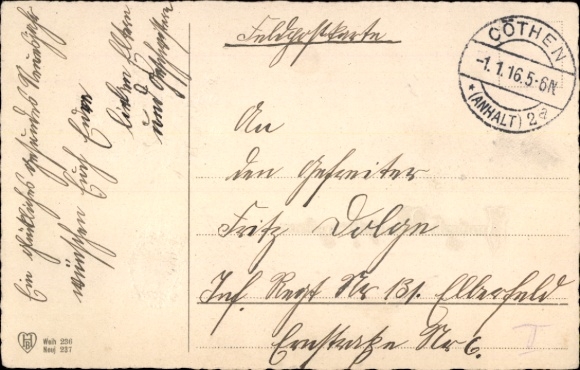 Ein glückliches gesundes Neujahr
wünschen Euch Eure
lieben Eltern
und Geschwister
Feldpostkarte
CÖTHEN
-1.1.16.5-6N
* (ANHALT) 2a
An
den Gefreiter
Fritz Dolge
Inf. Regt Nr 131. Elberfeld
Ernstraße Nr 6.
II
Weih 256
Neuj 227